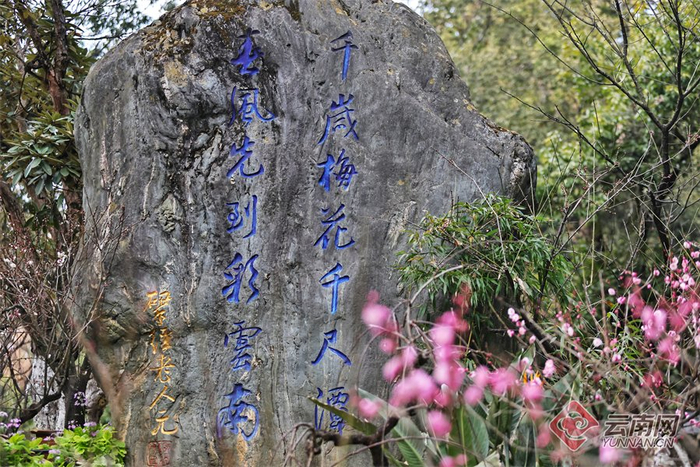 千嵗梅花千尺潭
春風先到彩雲南
云南网
YUNNAN.CN